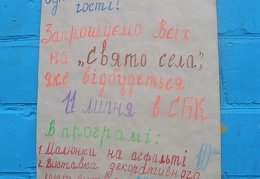 гості!
Запрошуємо Всіх
на „Свято села",
яке відбудеться
11 липня в СБК
В програмі:
1 Малюнка на асфальті 10
2. Виставка декоративного